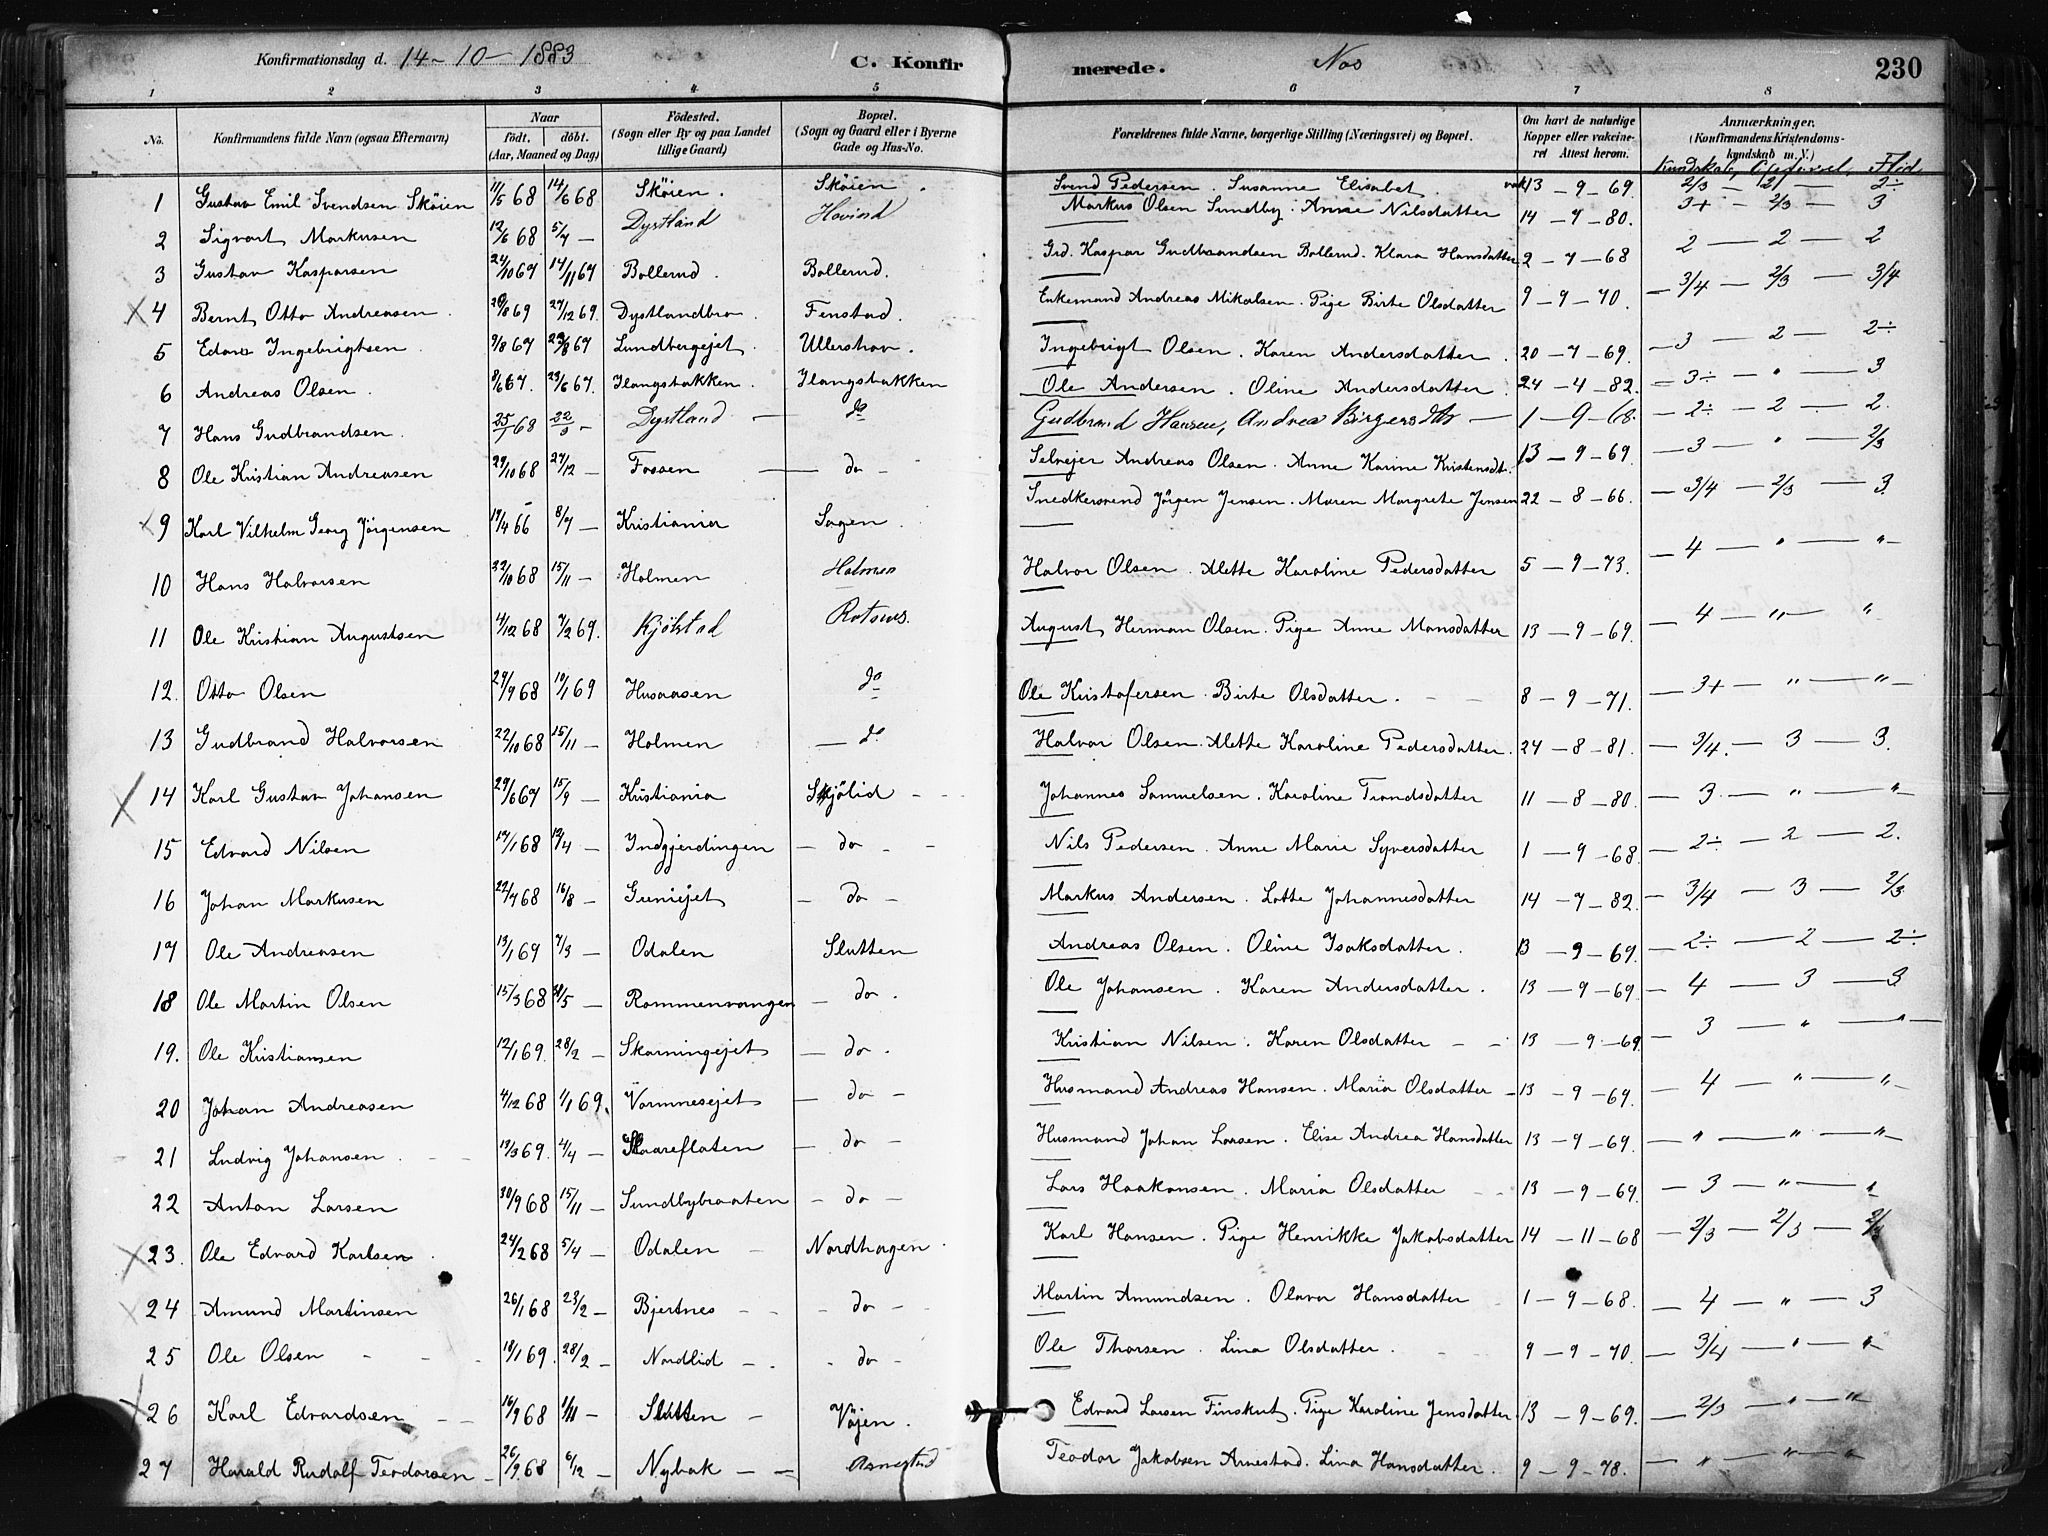 Konfirmationsdag d. 14-10-1883 C. Konfirmerede. Nes 230
1 2 3 4 5 6 7 8
No. Konfirmandens fulde Navn (ogsaa Efternavn) Naar födt. döbt. (Aar, Maaned og Dag) Födested. (Sogn eller By og paa Landet tillige Gaard) Bopæl. (Sogn og Gaard eller i Byerne Gade og Hus-No. Forældrenes fulde Navne, borgerlige Stilling (Næringsvei) og Bopæl. Om havt de naturlige Kopper eller vakcineret Attest herom. Anmærkninger. (Konfirmandens Kristendomskyndskab m.V.) Kundskab, Opførsel, Flid
1 Gustav Emil Svendsen Sköien 11/5 68 14/6 68 Sköien. Sköien. Svend Pedersen. Susanne Elisabet. vak 13-9-69. 2/3 - 2 - 2÷
2 Sigvart Markusen 12/6 68 5/7 - Dystland Hovind Markus Olsen Sundby. Anne Nilsdatter 14-7-80. 3+ - 2/3 - 3
3 Gustav Kasparsen 24/10 67 14/11 67 Bollerud. Bollerud. Grd. Kaspar Gudbrandsen Bollerud. Klara Hansdatter 2-7-68 2 - 2 - 2
4 Bernt Otto Andreasen. 28/8 69 27/12 69. Dystlandbro. Fenstad. Enkemand Andreas Mikalsen. Pige Birte Olsdatter 9-9-70. - 3/4 - 2/3 - 3/4
5 Edvard Ingebrigtsen 9/8 67 29/8 67 Lundbergejet. Ullershov. Ingebrigt Olsen. Karen Andersdatter. 20-7-69. - 3 - 2 - 2÷
6 Andreas Olsen. 8/6 67. 23/6 67. Ilangsbakken. Ilangsbakken Ole Andersen. Oline Andersdatter. 24-4-82. - 3÷ - " - 3
7 Hans Gudbrandsen. 25/1 68 22/3 - Dystland - do Gudbrand Hansen, Andrea Birgersdtr - 1-9-68. - 2÷ - 2 - 2.
8 Ole Kristian Andreasen 29/10 68 27/12 - Fossen - do - Selvejer Andreas Olsen. Anne Karine Kristensdt. 13-9-69. - 3 - " - 2/3
9 Karl Vilhelm Georg Jörgensen 19/4 66 8/7 - Kristiania Sagen. Snedkersvend Jörgen Jensen. Maren Margrete Jensen 22-8-66. - 3/4 - 2/3 - 3.
10 Hans Halvorsen 22/10 68 15/11 - Holmen Holmen Halvor Olsen. Alette Karoline Pedersdatter 5-9-73. - 4 - " - " -
11 Ole Kristian Augustsen 4/12 68 7/2 69. Kjölstad Rotnes. August Herman Olsen. Pige Anne Monsdatter 13-9-69. - 4 - " - "
12. Otto Olsen 29/9 68 10/1 69 Husaasen do Ole Kristofersen. Birte Olsdatter. 8-9-71. - 3+ - " - " -
13 Gudbrand Halvorsen 22/10 68 15/11 - Holmen - do Halvor Olsen. Alette Karoline Pedersdatter. 24-8-81. - 3/4. - 3 - 3.
14 Karl Gustav Johansen 29/6 67 15/9 - Kristiania Skjölid - Johannes Samuelsen. Karoline Trondsdatter 11-8-80. - 3 - " - " -
15 Edvard Nilsen 17/1 68 12/4 - Indgjerdingen - do - Nils Pedersen. Anne Marie Syversdatter 1-9-68. - 2÷ - 2 - 2.
16 Johan Markusen 22/7 68 16/8 - Gunnejet - do - Markus Andersen. Lotte Johannesdatter 14-7-82. - 3/4 - 3 - 2/3
17 Ole Andreasen 13/1 69 7/3 - Odalen Slutten Andreas Olsen. Oline Isaksdatter. 13-9-69. - 2÷ - 2 - 2÷
18 Ole Martin Olsen 15/3 68 31/5 - Rommenvangen - do. Ole Johansen. Karen Andersdatter. 13-9-69. - 4 - 3 - 3
19. Ole Kristiansen 12/1 69. 28/2 - Skarningejet - do. Kristian Nilsen. Karen Olsdatter - 13-9-69. - 3 - " - " -
20 Johan Andreasen 4/12 68 1/1 69. Vormnesejet - do - Husmand Andreas Hansen. Maria Olsdatter - 13-9-69. - 4 - " - " -
21 Ludvig Johansen. 13/3 69. 4/4 - Skaareflaten - do - Husmand Johan Larsen. Elise Andrea Hansdatter 13-9-69. - " - " - " -
22 Anton Larsen 30/9 68 15/11 - Sundbybraaten - do - Lars Haakonsen. Maria Olsdatter 13-9-69. - 3 - " - "
23. Ole Edvard Karlsen. 24/2 68 5/4 - Odalen - Nordhagen. Karl Hansen. Pige Henrikke Jakobsdatter 14-11-68 - 2/3 - 2/3 - 2/3
24 Amund Martinsen 26/1 68 23/2 - Bjertnes - do - Martin Amundsen. Olava Hansdatter 1-9-68. - 4 - " - 3
25 Ole Olsen - 18/1 69. 28/2 - Nordlid - do - Ole Thorsen. Lina Olsdatter. 9-9-70. - 3/4 - " - "
26 Karl Edvardsen 16/9 68 1/11 - Slutten - Vöjen. Edvard Larsen Finskut. Pige Karoline Jensdatter. 13-9-69. - 2/3 - " - "
27 Harald Rudolf Teodorsen - 26/9 68 6/12 - Nybak - Arnestad Teodor Jakobsen Arnestad. Lina Hansdatter. 9-9-78. - " - " - "